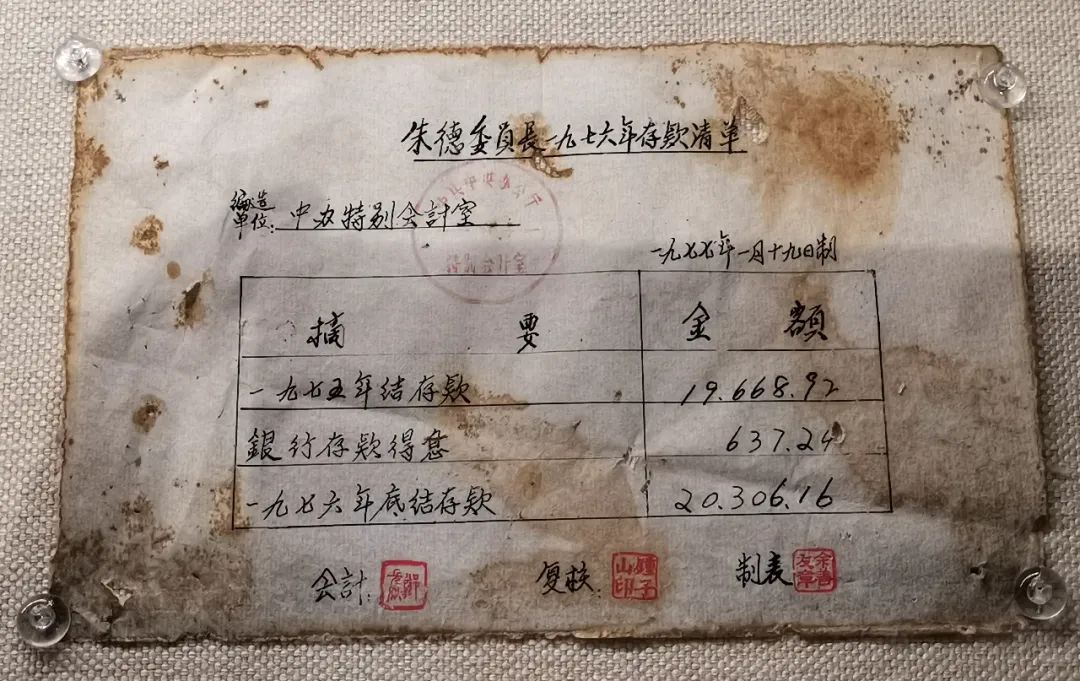 朱德委員長一九七六年存款清单
编造单位：中办特别会計室
一九七七年一月十九日制
摘要 金额
一九七五年结存款 19.668.92
銀行存款得息 637.24
一九七六年底结存款 20.306.16
会計： 复核： 制表